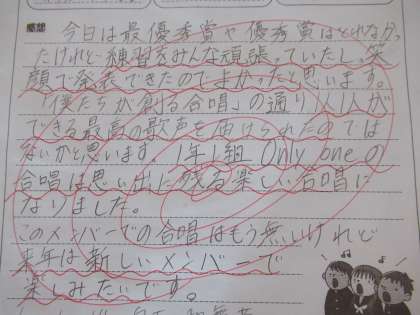 感想
今日は最優秀賞や優秀賞はとれなかっ
たけれど練習をみんな頑張っていたし、笑
顔で発表できたのでよかったと思います。
「僕たちが創る合唱」の通り1人1人が
できる最高の歌声を届けられたのでは
ないかと思います。1年1組 Only oneの
合唱は思い出に残る楽しい合唱に
なりました。
このメンバーでの合唱はもう無いけれど
来年は新しいメンバーで
楽しみたいです。